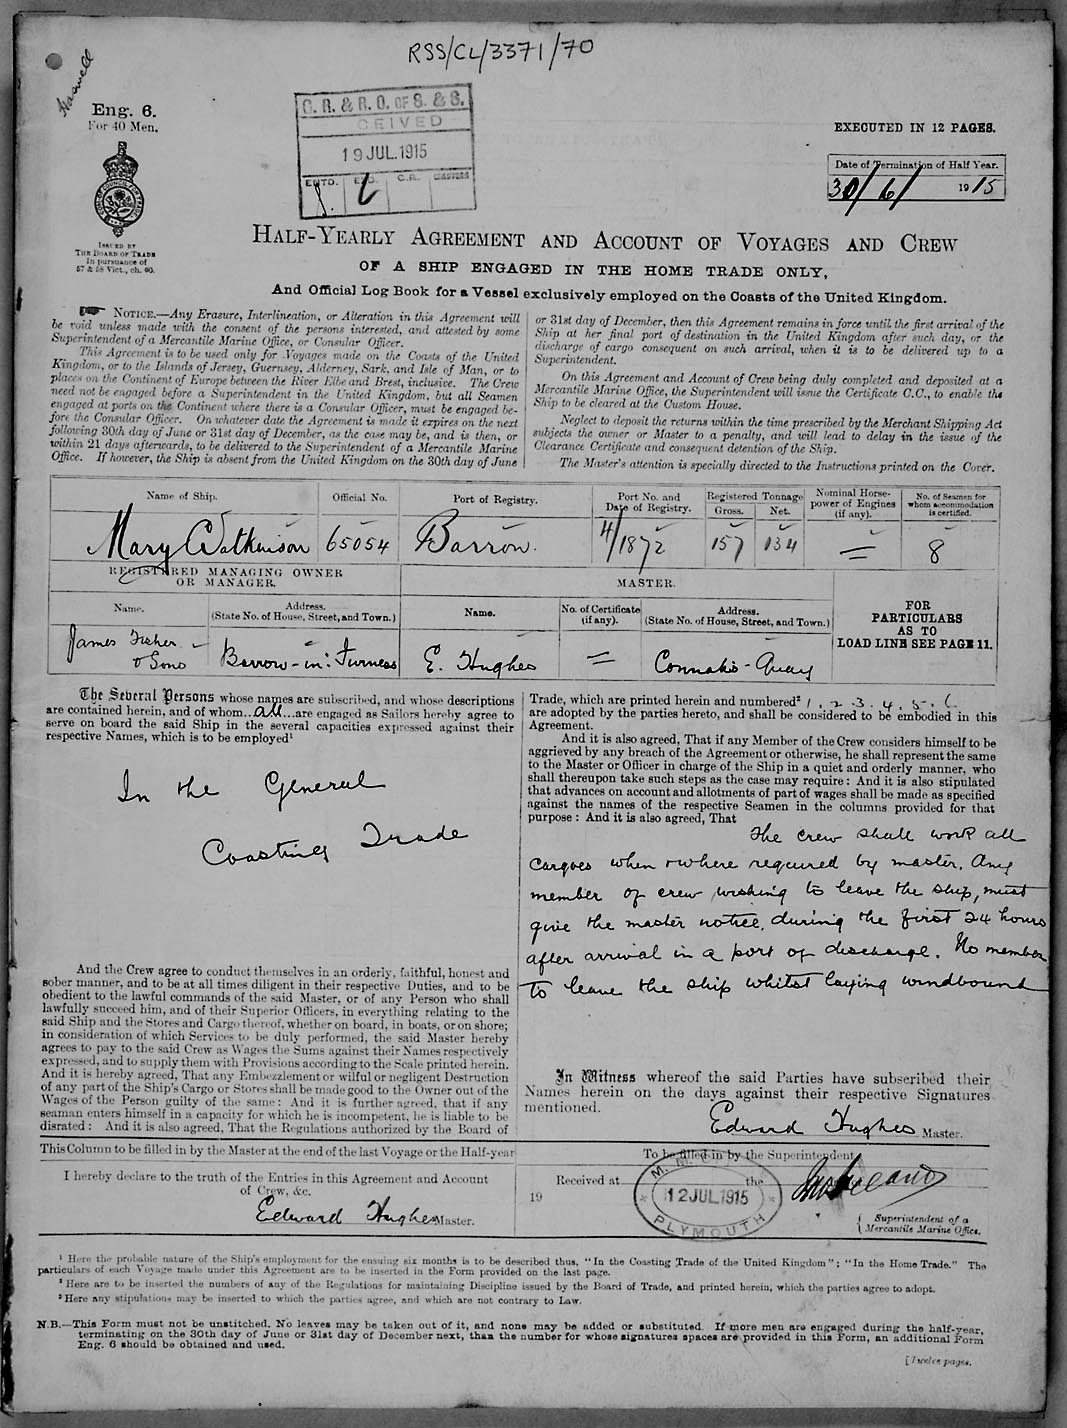 RSS/CL/3371/70
Eng. 6.
For 40 Men.
ISSUED BY
THE BOARD OF TRADE
In pursuance of
57 & 58 Vict., ch. 60.
& R. O. OF S. & S.
CEIVED
19 JUL. 1915
ENTD.
C.R.
MASTERS
EXECUTED IN 12 PAGES.
Date of Termination of Half Year.
30/6/ 1915
HALF-YEARLY AGREEMENT AND ACCOUNT OF VOYAGES AND CREW
OF A SHIP ENGAGED IN THE HOME TRADE ONLY,
And Official Log Book for a Vessel exclusively employed on the Coasts of the United Kingdom.
NOTICE.—Any Erasure, Interlineation, or Alteration in this Agreement will
be void unless made with the consent of the persons interested, and attested by some
Superintendent of a Mercantile Marine Office, or Consular Officer.
This Agreement is to be used only for Voyages made on the Coasts of the United
Kingdom, or to the Islands of Jersey, Guernsey, Alderney, Sark, and Isle of Man, or to
places on the Continent of Europe between the River Elbe and Brest, inclusive. The Crew
need not be engaged before a Superintendent in the United Kingdom, but all Seamen
engaged at ports on the Continent where there is a Consular Officer, must be engaged be-
fore the Consular Officer. On whatever date the Agreement is made it expires on the next
following 30th day of June or 31st day of December, as the case may be, and is then, or
within 21 days afterwards, to be delivered to the Superintendent of a Mercantile Marine
Office. If however, the Ship is absent from the United Kingdom on the 30th day of June
or 31st day of December, then this Agreement remains in force until the first arrival of the
Ship at her final port of destination in the United Kingdom after such day, or the
discharge of cargo consequent on such arrival, when it is to be delivered up to a
Superintendent.
On this Agreement and Account of Crew being duly completed and deposited at a
Mercantile Marine Office, the Superintendent will issue the Certificate C.C., to enable the
Ship to be cleared at the Custom House.
Neglect to deposit the returns within the time prescribed by the Merchant Shipping Act
subjects the owner or Master to a penalty, and will lead to delay in the issue of the
Clearance Certificate and consequent detention of the Ship.
The Master's attention is specially directed to the Instructions printed on the Cover.
Name of Ship. Official No. Port of Registry. Port No. and Date of Registry. Registered Tonnage Gross. Net. Nominal Horse-power of Engines (if any). No. of Seamen for whom accommodation is certified.
Mary Watkinson 65054 Barrow. 4/1872 157 134 = 8
REGISTERED MANAGING OWNER
OR MANAGER.
MASTER.
Name. Address. (State No. of House, Street, and Town.) Name. No. of Certificate (if any). Address. (State No. of House, Street, and Town.)
FOR
PARTICULARS
AS TO
LOAD LINE SEE PAGE 11.
James Fisher & Sons Barrow-in-Furness E. Hughes = Connahs-Quay
The Several Persons whose names are subscribed, and whose descriptions
are contained herein, and of whom...all...are engaged as Sailors hereby agree to
serve on board the said Ship in the several capacities expressed against their
respective Names, which is to be employed¹
In the General
Coasting Trade
And the Crew agree to conduct themselves in an orderly, faithful, honest and
sober manner, and to be at all times diligent in their respective Duties, and to be
obedient to the lawful commands of the said Master, or of any Person who shall
lawfully succeed him, and of their Superior Officers, in everything relating to the
said Ship and the Stores and Cargo thereof, whether on board, in boats, or on shore;
in consideration of which Services to be duly performed, the said Master hereby
agrees to pay to the said Crew as Wages the Sums against their Names respectively
expressed, and to supply them with Provisions according to the Scale printed herein.
And it is hereby agreed, That any Embezzlement or wilful or negligent Destruction
of any part of the Ship's Cargo or Stores shall be made good to the Owner out of the
Wages of the Person guilty of the same: And it is further agreed, that if any
seaman enters himself in a capacity for which he is incompetent, he is liable to be
disrated: And it is also agreed, That the Regulations authorized by the Board of
Trade, which are printed herein and numbered² 1. 2. 3. 4. 5. 6
are adopted by the parties hereto, and shall be considered to be embodied in this
Agreement.
And it is also agreed, That if any Member of the Crew considers himself to be
aggrieved by any breach of the Agreement or otherwise, he shall represent the same
to the Master or Officer in charge of the Ship in a quiet and orderly manner, who
shall thereupon take such steps as the case may require: And it is also stipulated
that advances on account and allotments of part of wages shall be made as specified
against the names of the respective Seamen in the columns provided for that
purpose: And it is also agreed, That
The crew shall work all
cargoes when & where required by master. Any
member of crew wishing to leave the ship, must
give the master notice, during the first 24 hours
after arrival in a port of discharge. No member
to leave the ship whilst laying windbound
In Witness whereof the said Parties have subscribed their
Names herein on the days against their respective Signatures
mentioned.
Edward Hughes Master.
This Column to be filled in by the Master at the end of the last Voyage or the Half-year
I hereby declare to the truth of the Entries in this Agreement and Account
of Crew, &c.
Edward Hughes Master.
To be filled in by the Superintendent
Received at the
19
12 JUL. 1915
PLYMOUTH
Superintendent of a
Mercantile Marine Office.
¹ Here the probable nature of the Ship's employment for the ensuing six months is to be described thus, "In the Coasting Trade of the United Kingdom"; "In the Home Trade." The
particulars of each Voyage made under this Agreement are to be inserted in the Form provided on the last page.
² Here are to be inserted the numbers of any of the Regulations for maintaining Discipline issued by the Board of Trade, and printed herein, which the parties agree to adopt.
³ Here any stipulations may be inserted to which the parties agree, and which are not contrary to Law.
N.B.—This Form must not be unstitched. No leaves may be taken out of it, and none may be added or substituted. If more men are engaged during the half-year,
terminating on the 30th day of June or 31st day of December next, than the number for whose signatures spaces are provided in this Form, an additional Form
Eng. 6 should be obtained and used.
[Twelve pages.